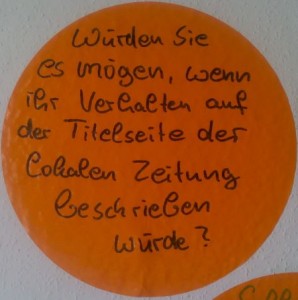 Würden Sie
es mögen, wenn
ihr Verhalten auf
der Titelseite der
lokalen Zeitung
beschrieben
würde?